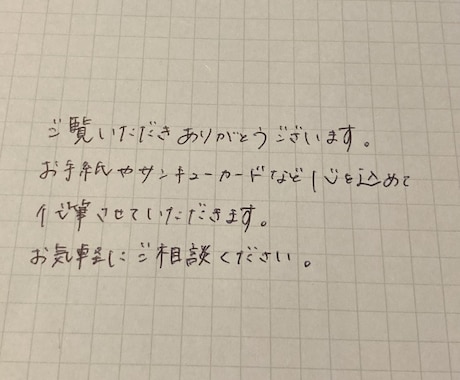 ご覧いただきありがとうございます。
お手紙やサンキューカードなど心を込めて
代筆させていただきます。
お気軽にご相談ください。